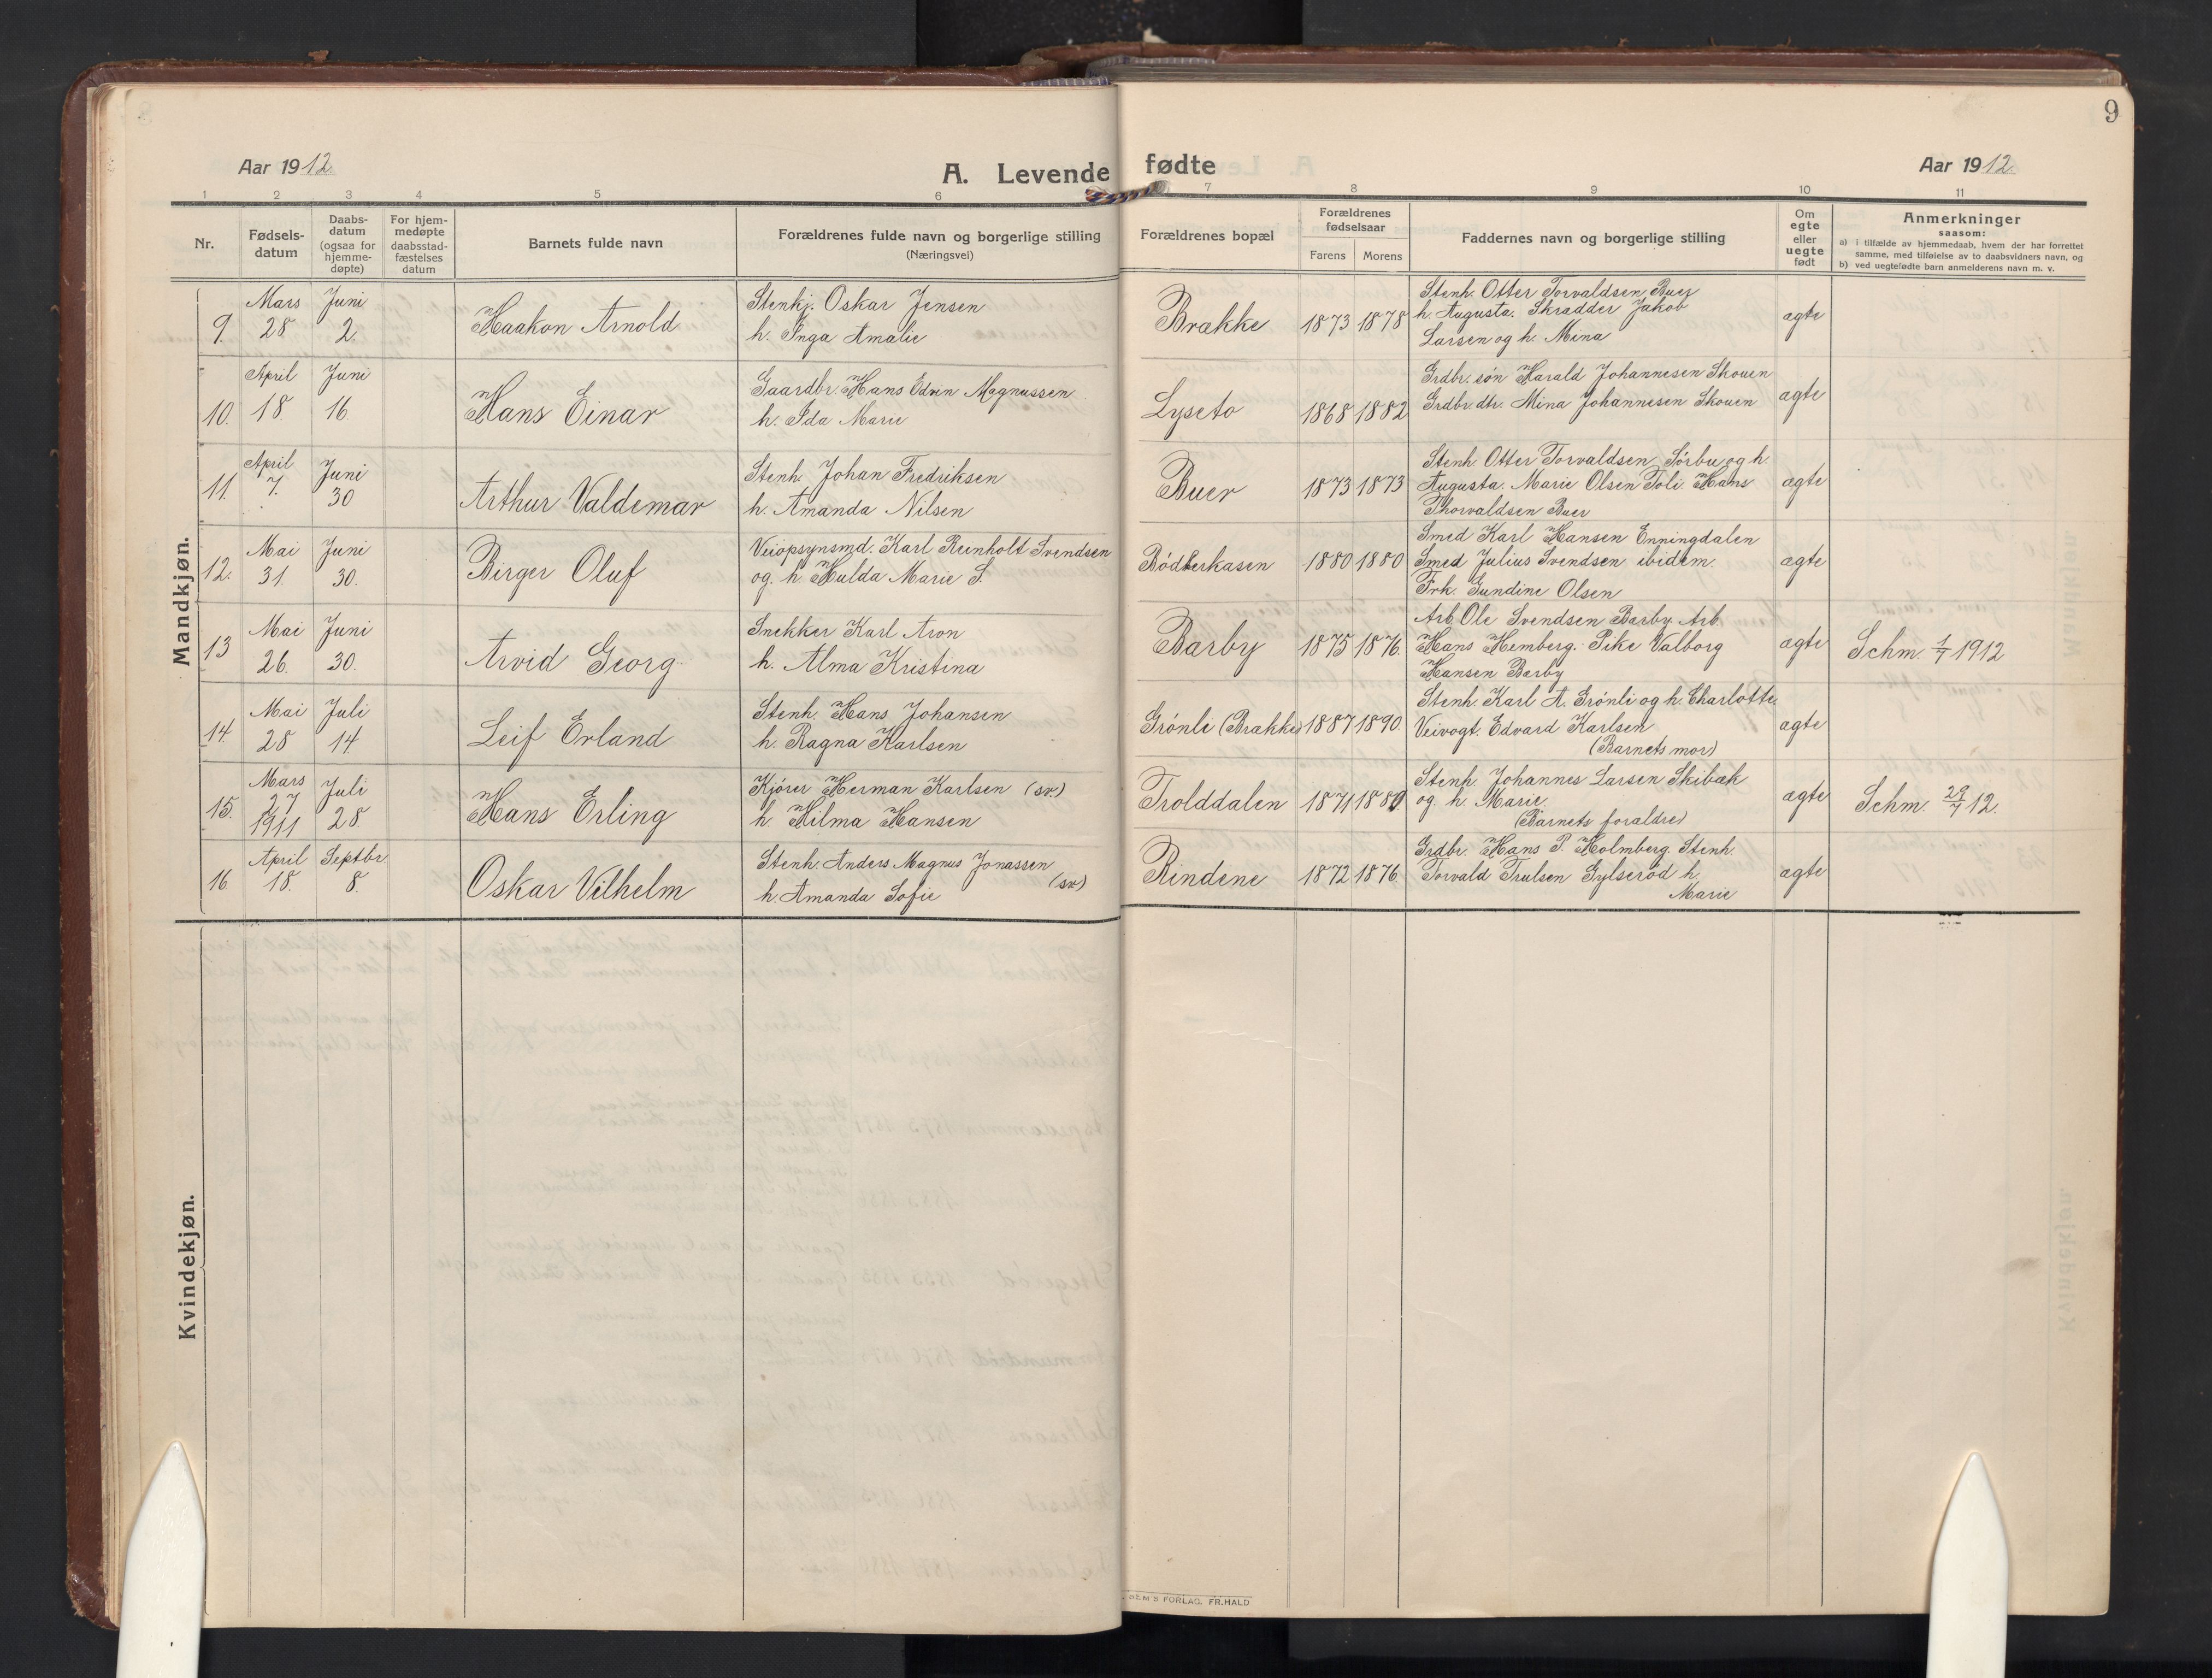 9
Aar 1912.
A. Levende fødte
Aar 1912.
1 2 3 4 5 6 7 8 9 10 11
Nr.
Fødsels-
datum
Daabs-
datum
(ogsaa for
hjemme-
døpte)
For hjem-
medøpte
daabsstad-
fæstelses
datum
Barnets fulde navn
Forældrenes fulde navn og borgerlige stilling
(Næringsvei)
Forældrenes bopæl
Forældrenes
fødselsaar
Farens Morens
Faddernes navn og borgerlige stilling
Om
egte
eller
uegte
født
Anmerkninger
saasom:
a) i tilfælde av hjemmedaab, hvem der har forrettet
samme, med tilføielse av to daabsvidners navn, og
b) ved uegtefødte barn anmelderens navn m. v.
Mandkjøn.
9.
Mars
28
Juni
2.
Haakon Arnold
Stenhj. Oskar Jensen
h. Inga Amalie
Brække
1873 1878
Stenh. Otter Torvaldsen Buer
h. Augusta. Skrædder Jakob
Larsen og h. Mina
ægte
10.
April
18
Juni
16.
Hans Einar
Gaardbr. Hans Edvin Magnussen
h. Ida Marie
Lyseto
1868 1882
Grdbr. søn Harald Johannesen Skouen
Grdbr. dtr. Mina Johannesen Skouen
ægte
11.
April
7.
Juni
30
Arthur Valdemar
Stenh. Johan Fredriksen
h. Amanda Nilsen
Buer
1873 1873
Stenh. Otter Torvaldsen Sörbu og h.
Augusta. Marie Olsen Toli. Hans
Thorvaldsen Buer
ægte
12.
Mai
31.
Juni
30.
Birger Oluf
Veiopsynsmd. Karl Reinholt Svendsen
og. h. Hulda Marie S.
Bödkerkasen
1880 1880
Smed Karl Hansen Enningdalen
Smed Julius Svendsen ibidem.
Frk. Gundine Olsen
ægte
13
Mai
26.
Juni
30.
Arvid Georg
Snekker Karl Aron
h. Alma Kristina
Barby
1875 1876.
Arb. Ole Svendsen Barby. Arb.
Hans Hemberg. Pike Valborg
Hansen Barby
ægte
Schm. 1/7 1912
14
Mai
28
Juli
14
Leif Erland
Stenh. Hans Johansen
h. Ragna Karlsen
Grönli (Brække)
1887 1890.
Stenh. Karl A. Grönli og h. Charlotte.
Veivogt. Edvard Karlsen
(Barnets mor)
ægte
15.
Mars
27
1911
Juli
28.
Hans Erling
Kjörer Herman Karlsen (sv.)
h. Hilma Hansen
Trolddalen
1871 1880
Stenh. Johannes Larsen Skibæk
og. h. Marie.
(Barnets forældre)
ægte
Schm. 29/7 12.
16
April
18.
Septbr
8.
Oskar Vilhelm
Stenh. Anders Magnus Jonassen
(sv)
h. Amanda Sofie
Rindene
1872 1876
Grdbr. Hans P. Holmberg. Stenh.
Torvald Trulsen Gylseröd h.
Marie
ægte
Kvindekjøn.
SEM'S FORLAG. FR. HALD